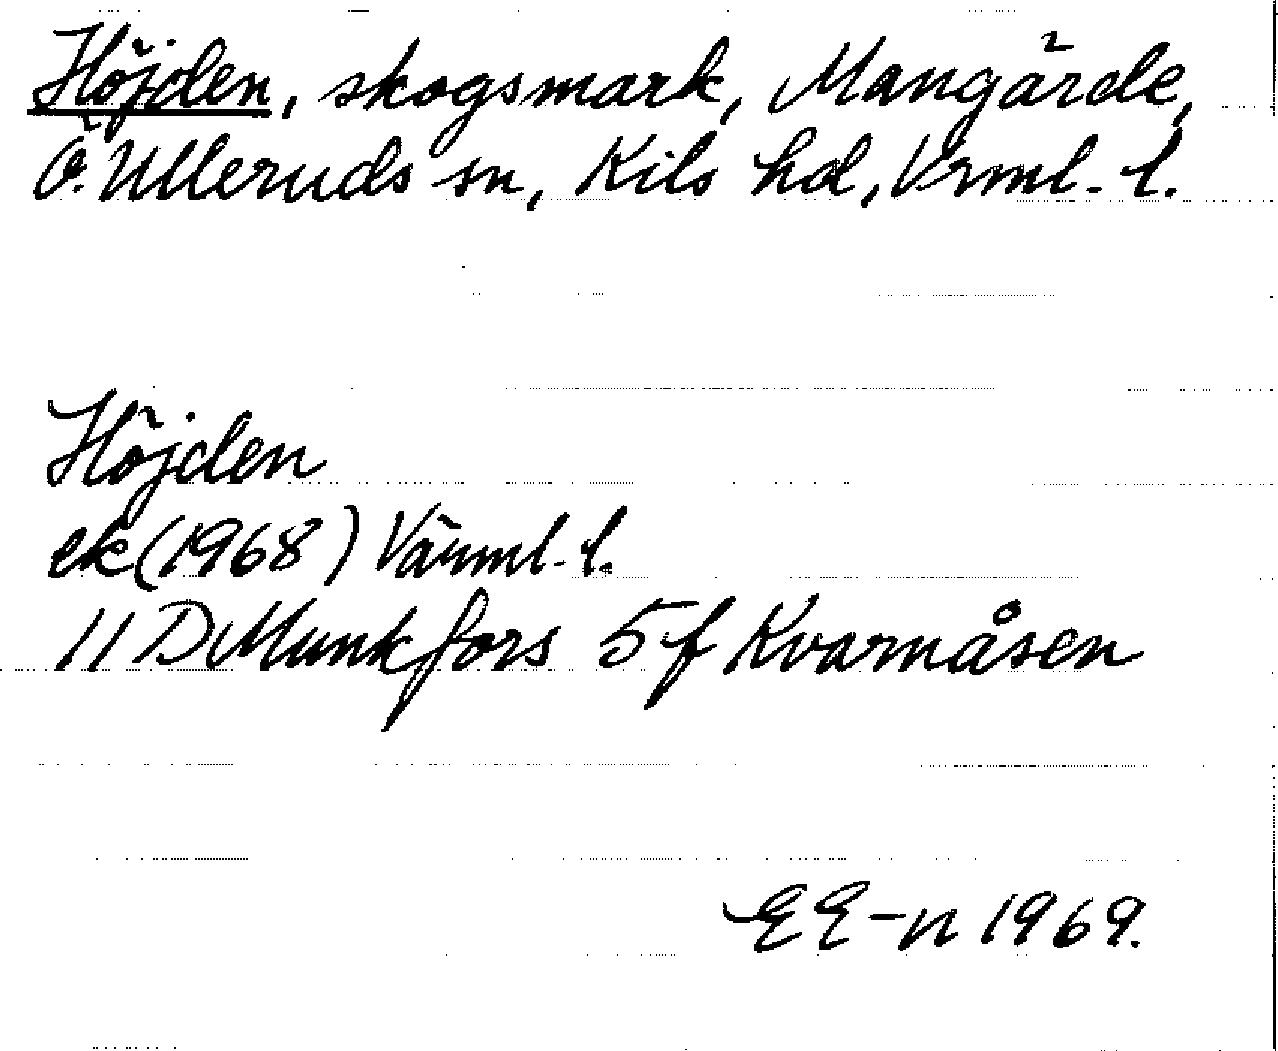 Höjden, skogsmark, Mangärde,
Ö. Ulleruds sn, Kils hd, Vrml. l.
Höjden
ek (1968) Värml. l.
11 D Munkfors 5 f Kvarnåsen
EE-n 1969.